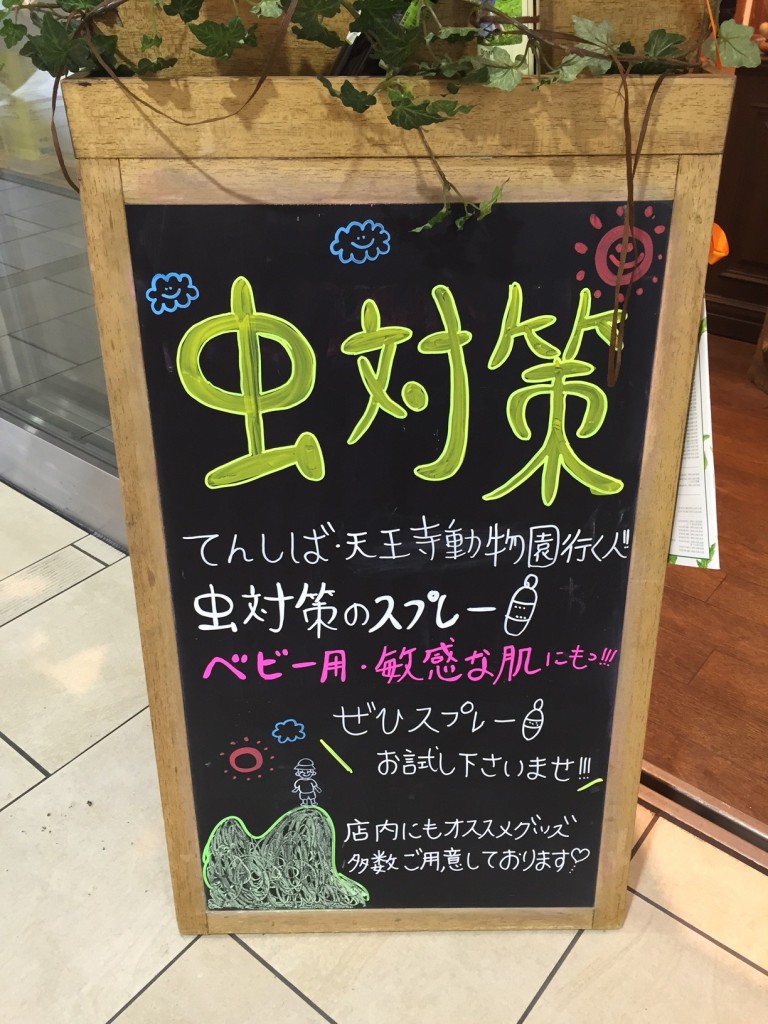 虫対策
てんしば・天王寺動物園行く人!!
虫対策のスプレー
ベビー用・敏感な肌にもっ!!!
ぜひスプレー
お試し下さいませ!!!
店内にもオススメグッズ
多数ご用意しております♡